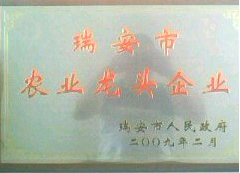 瑞安市
农业龙头企业
瑞安市人民政府
二〇〇九年二月